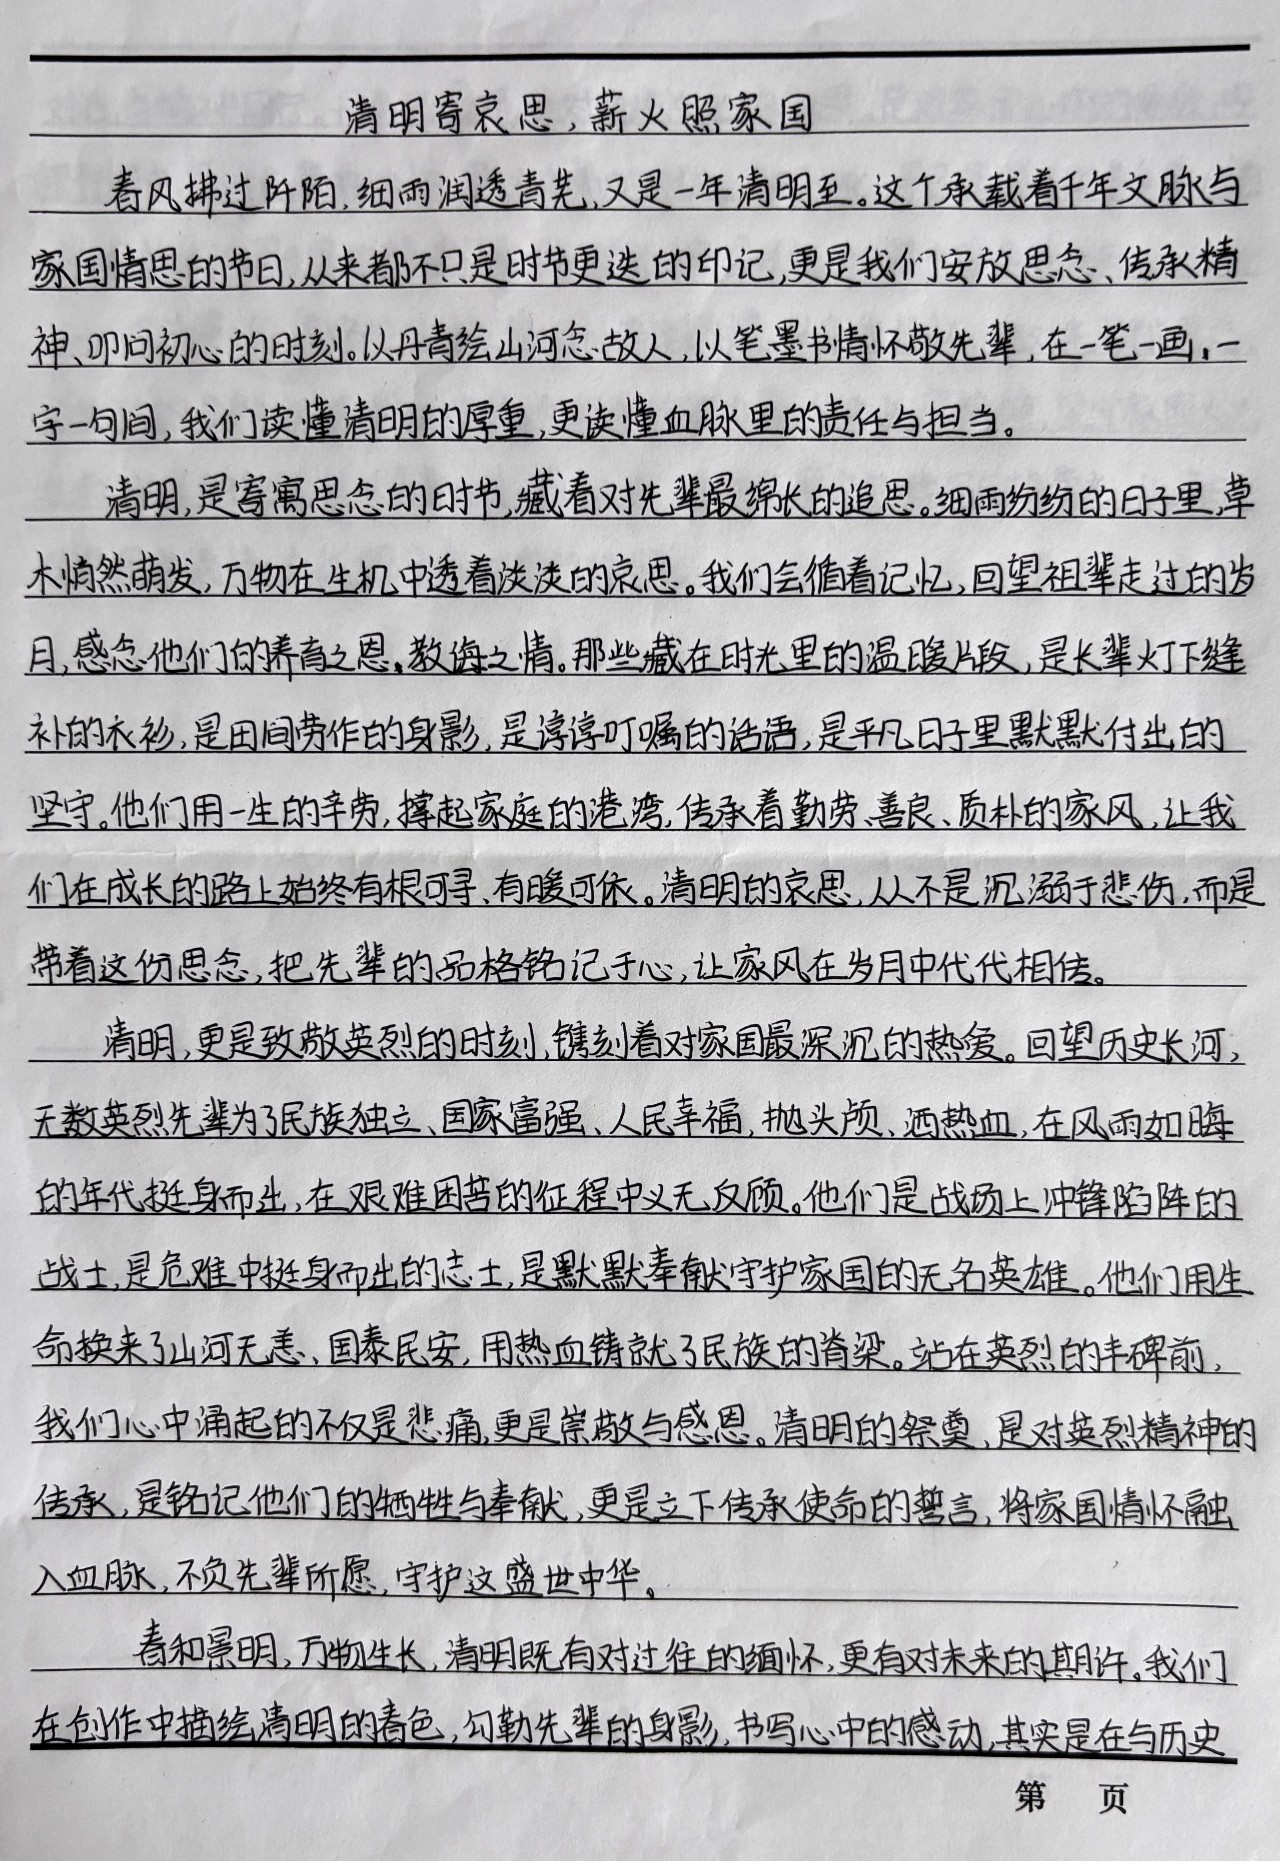 清明寄哀思，薪火照家国
春风拂过阡陌，细雨润透青芜，又是一年清明至。这个承载着千年文脉与
家国情思的节日，从来都不只是时节更迭的印记，更是我们安放思念、传承精
神、叩问初心的时刻。以丹青绘山河念故人，以笔墨书情怀敬先辈，在一笔一画，一
字一句间，我们读懂清明的厚重，更读懂血脉里的责任与担当。
清明，是寄寓思念的时节，藏着对先辈最绵长的追思。细雨纷纷的日子里，草
木悄然萌发，万物在生机中透着淡淡的哀思。我们会循着记忆，回望祖辈走过的岁
月，感念他们的养育之恩、教诲之情。那些藏在时光里的温暖片段，是长辈灯下缝
补的衣衫，是田间劳作的身影，是谆谆叮嘱的话语，是平凡日子里默默付出的
坚守。他们用一生的辛劳，撑起家庭的港湾，传承着勤劳、善良、质朴的家风，让我
们在成长的路上始终有根可寻、有暖可依。清明的哀思，从不是沉溺于悲伤，而是
带着这份思念，把先辈的品格铭记于心，让家风在岁月中代代相传。
清明，更是致敬英烈的时刻，镌刻着对家国最深沉的热爱。回望历史长河，
无数英烈先辈为了民族独立、国家富强、人民幸福，抛头颅、洒热血，在风雨如晦
的年代挺身而出，在艰难困苦的征程中义无反顾。他们是战场上冲锋陷阵的
战士，是危难中挺身而出的志士，是默默奉献守护家国的无名英雄。他们用生
命换来了山河无恙、国泰民安，用热血铸就了民族的脊梁。站在英烈的丰碑前，
我们心中涌起的不仅是悲痛，更是崇敬与感恩。清明的祭奠，是对英烈精神的
传承，是铭记他们的牺牲与奉献，更是立下传承使命的誓言，将家国情怀融
入血脉，不负先辈所愿，守护这盛世中华。
春和景明，万物生长，清明既有对过往的缅怀，更有对未来的期许。我们
在创作中描绘清明的春色，勾勒先辈的身影，书写心中的感动，其实是在与历史
第 页